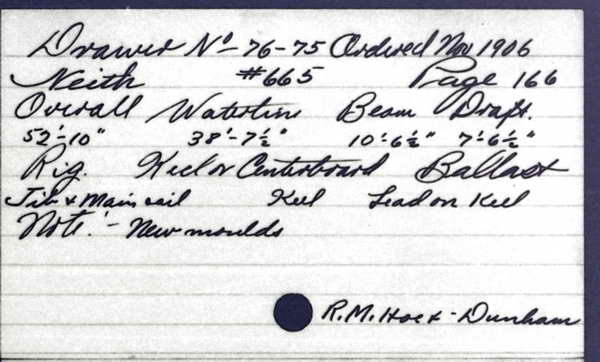 Drawer No - 76-75 Ordered Nov 1906
Neith #665 Page 166
Overall Waterline Beam Draft.
52'-10" 38'-7½" 10'-6½" 7'-6½"
Rig. Keel or Centerboard Ballast
Jib & Mainsail Keel Lead on Keel
Note: - New moulds
R.M. Hoe & - Dunham